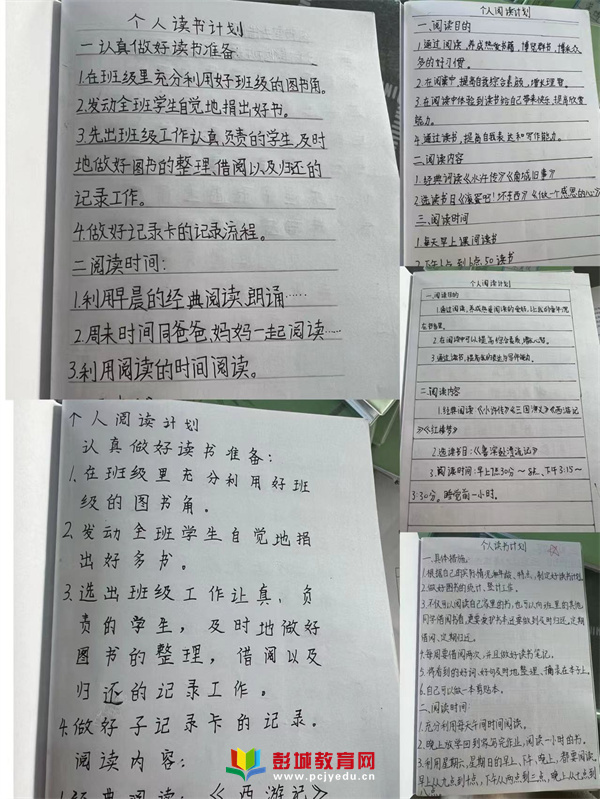 个人读书计划
一认真做好读书准备
1.在班级里充分利用好班级的图书角。
2.发动全班学生自觉地捐出好书。
3.先出班级工作认真、负责的学生,及时
地做好图书的整理、借阅以及归还的
记录工作。
4.做好记录卡的记录流程。
二阅读时间:
1.利用早晨的经典阅读、朗诵……
2.周末时间同爸爸、妈妈一起阅读……
3.利用阅读的时间阅读。
个人阅读计划
一、阅读目的
1.通过阅读,养成热爱书籍,博览群书,
多的好习惯。
2.在阅读中,提高自我综合素质,增长理智。
3.在阅读中体验到读书给自己带来快乐,提高欣赏
能力。
4.通过读书,提高自我表达和写作能力。
二、阅读内容
1.经典诵读《水浒传》《城南旧事》
2.选读书目《滚蛋吧!坏东西》《做一个感恩的
三、阅读时间
1.每天早上课间阅读书
2.下午1点到1点50读书
个人阅读计划
一、阅读目的
1.通过阅读,养成热爱阅读的爱好,让我的童年沉
在书香里。
2.在阅读中可以提高综合素质,增长
3.通过读书,提高我的表达与写作能力。
二、阅读内容
1.经典阅读《小浒传》《三国演义》《西游记
》《红楼梦》
2.选读书目:《鲁滨孙漂流记》
3.阅读时间:早上7:30分~8点、下午3:15~
3:30分。睡觉前一小时。
个人阅读计划
认真做好读书准备:
1.在班级里充分利用好班
级的图书角。
2.发动全班学生自觉地捐
出好多书。
3.选出班级工作让真、负
责的学生,及时地做好
图书的整理,借阅以及
归还的记录工作。
4.做好子记录卡的记录。
阅读内容:
1.经典阅读:《西游记》
个人读书计划
一、具体措施:
1.根据自己的实际情况如年龄、特点,制定好读书计划。
2.做好图书的统计、整计工作。
3.不仅可以阅读自己家里的书,也可以向班里的其他
同学借阅书看,更要爱护书本还要做到及时归还,定期
借阅、定期归还。
4.每周要借阅两次,并且做好读书笔记。
5.将看到的好词、好句及时地整理、摘录在本子上。
6.自己可以做一本剪贴本。
二、阅读时间:
1.充分利用每天午间时间阅读。
2.晚上放学回到家写完作业,阅读一小时的书。
3.利用星期六、星期日的早上、下午、晚上,都要阅读。
早上从九点到十点,下午从两点到三点,晚上从七点到
彭城教育网
www.pcjyedu.cn